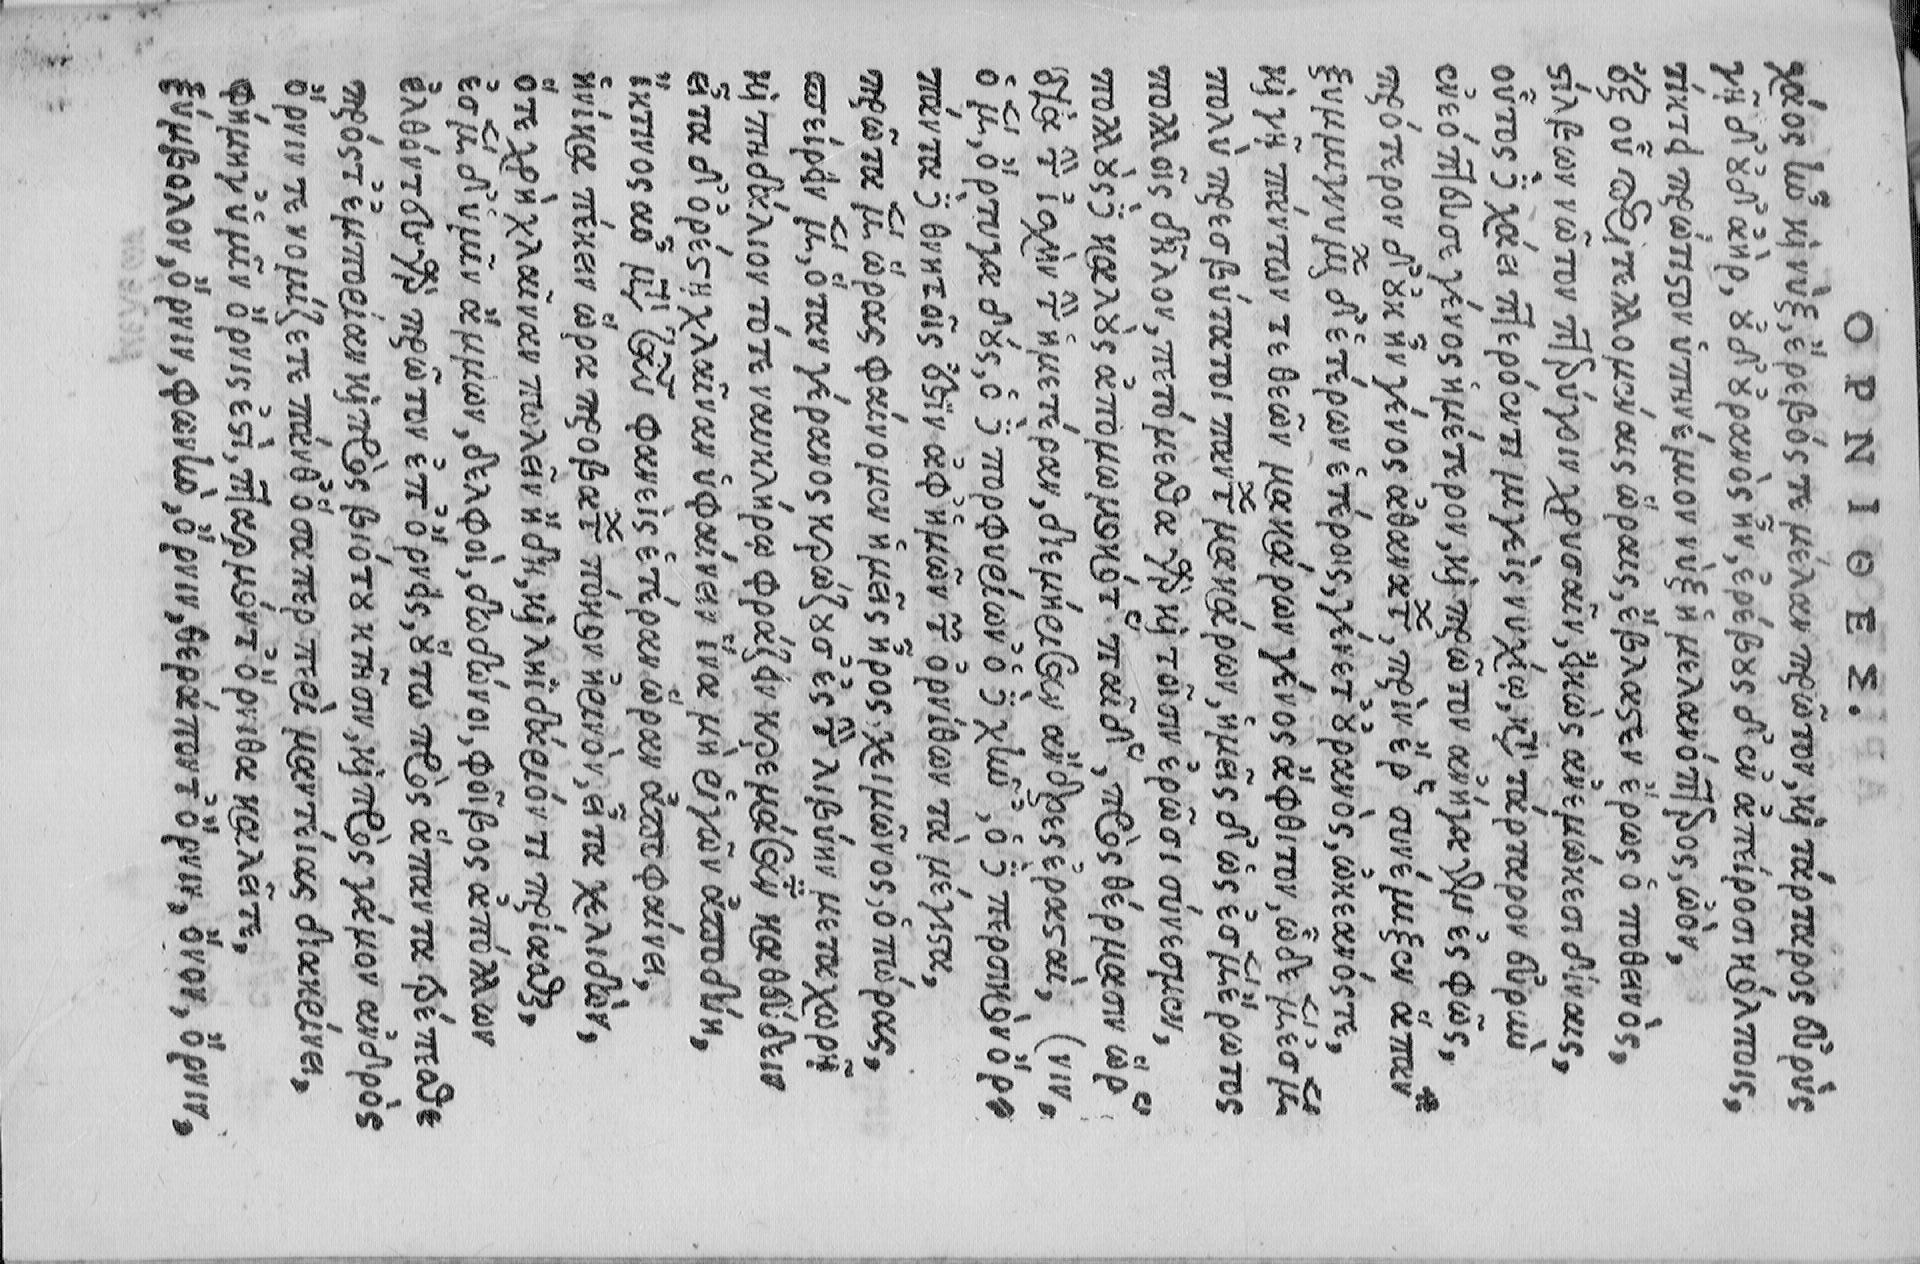 ΟΡΝΙΘΕΣ.
χάος ἦν καὶ νὺξ, ἔρεβός τε μέλαν πρῶτον, καὶ τάρταρος εὐρὺς
γῆ δ' οὐδ' ἀὴρ, οὐδ' οὐρανὸς ἦν, ἐρέβους δ' ἐν ἀπείροσι κόλποις,
τίκτει πρώτιστον ὑπηνέμιον νὺξ ἡ μελανόπτερος, ὠόν,
ἐξ οὗ περιτελλομέναις ὥραις, ἔβλαστεν ἔρως ὁ ποθεινὸς,
στίλβων νῶτον πτερύγοιν χρυσαῖν, εἰκὼς ἀνεμώκεσι δίναις,
οὗτος δὲ χάει πτερόεντι μιγεὶς νυχίῳ, κατὰ τάρταρον εὐρὺν
ἐνεόττευσε γένος ἡμέτερον, καὶ πρῶτον ἀνήγαγεν ἐς φῶς,
πρότερον δ' οὐκ ἦν γένος ἀθανάτων, πρὶν ἔρως συνέμιξεν ἅπαντα
ξυμμιγνυμένων δ' ἑτέρων ἑτέροις, γένετ' οὐρανὸς, ὠκεανός τε,
καὶ γῆ πάντων τε θεῶν μακάρων γένος ἄφθιτον, ὧδε μέν ἐσμεν
πολὺ πρεσβύτατοι πάντων μακάρων, ἡμεῖς δ' ὡς ἐσμὲν ἔρωτος
πολλοῖς δῆλον, πετόμεσθα γὰρ καὶ τοῖσιν ἐρῶσι σύνεσμεν,
πολλοὺς δὲ καλοὺς ἀπομωμοκότας παῖδας, πρὸς θέρμασιν ὥρας
διὰ τὴν ἰσχὺν τὴν ἡμετέραν, διεμήρισαν ἄνδρες ἐρασταὶ, (νιν,
ὁ μὲν, ὄρτυγα δοὺς, ὁ δὲ πορφυρίων' ὁ δὲ χῆν', ὁ δὲ περσικὸν ὄρ
πάντα δὲ θνητοῖς ἐστὶν ἀφ' ἡμῶν τῶν ὀρνίθων τὰ μέγιστα,
πρῶτα μὲν ὥρας φαίνομεν ἡμεῖς ἦρος, χειμῶνος, ὀπώρας,
σπείρειν μὲν, ὅταν γέρανος κρώζουσ' ἐς τὴν λιβύην μεταχωρῇ
καὶ πηδάλιον τότε ναυκλήρῳ φράζει κρεμάσαντι καθεύδειν
εἶτα δ' ὀρέστῃ χλαῖναν ὑφαίνειν ἵνα μὴ ῥιγῶν ἀποδύῃ,
ἴκτινος δ' αὖ μετὰ ταῦτα φανεὶς ἑτέραν ὥραν ἀποφαίνει,
ἡνίκα πέκειν ὥρα προβάτων πόκον ἠρινὸν, εἶτα χελιδὼν,
ὅτε χρὴ χλαῖναν πωλεῖν ἤδη, καὶ ληδάριόν τι πρίασθαι,
ἐσμὲν δ' ὑμῖν ἄμμων, δελφοὶ, δωδώνη, φοῖβος ἀπόλλων
ἐλθόντες γὰρ πρῶτον ἐπ' ὄρνις, οὕτω πρὸς ἅπαντα τρέπεσθε
πρός τ' ἐμπορίαν καὶ πρὸς βιότου κτῆσιν, καὶ πρὸς γάμον ἀνδρὸς
ὄρνιν τε νομίζετε πάνθ' ὅσαπερ περὶ μαντείας διακρίνει,
φήμη γ' ὑμῖν ὄρνις ἐστὶ, πταρμόν τ' ὄρνιθα καλεῖτε,
ξύμβολον, ὄρνιν, φωνὴν, ὄρνιν, θεράποντ' ὄρνιν, ὄνον, ὄρνιν,